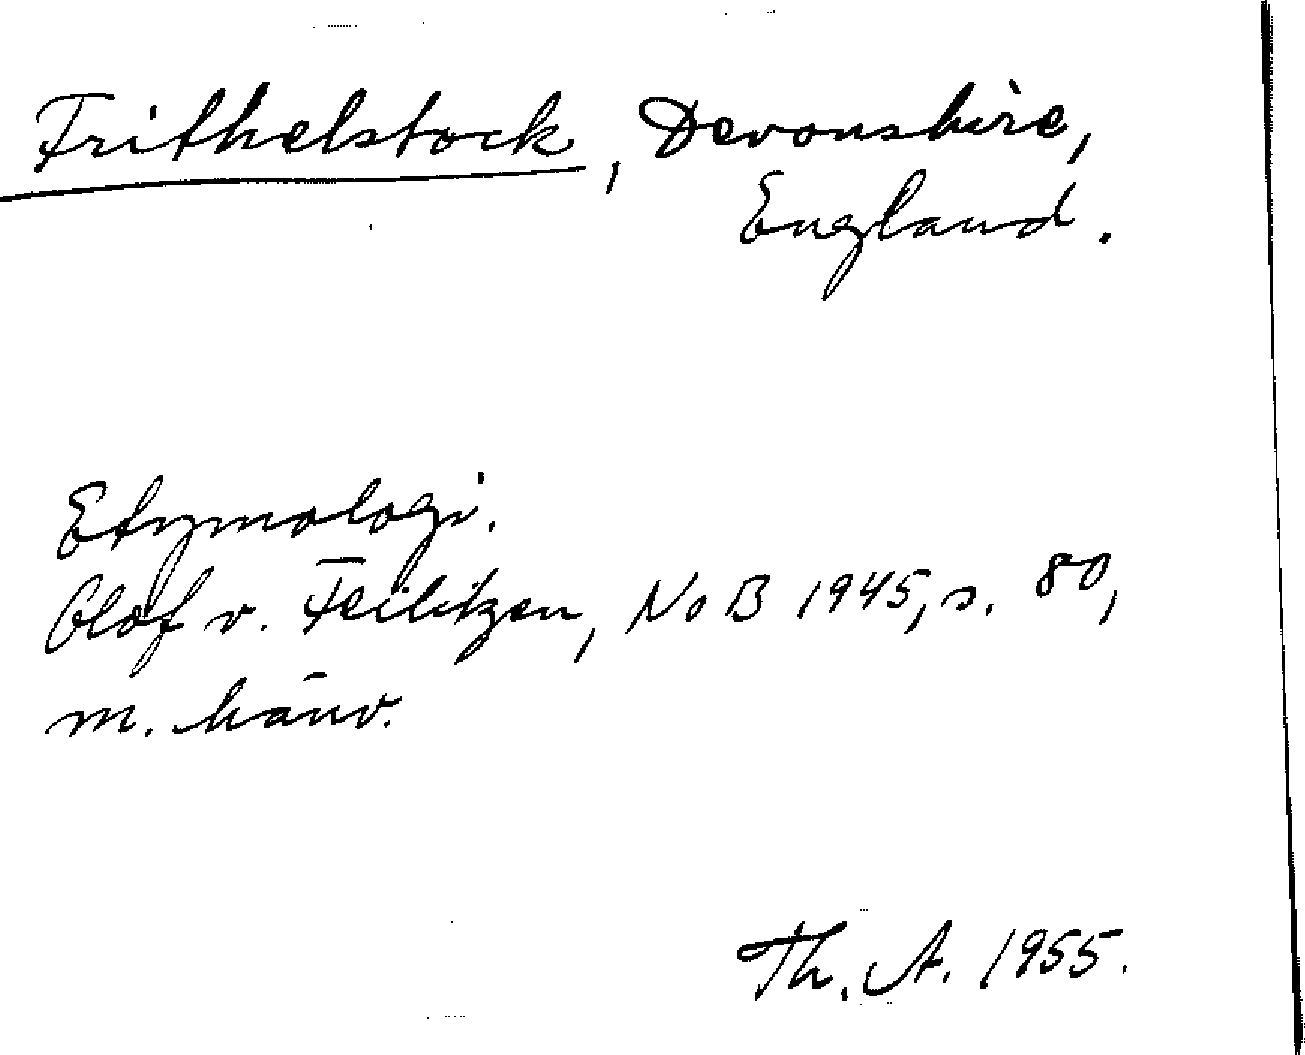 Frithelstock, Devonshire,
England.
Etymologi.
Olof v. Feilitzen, NoB 1945, s. 80,
m. hänv.
Th. A. 1955.